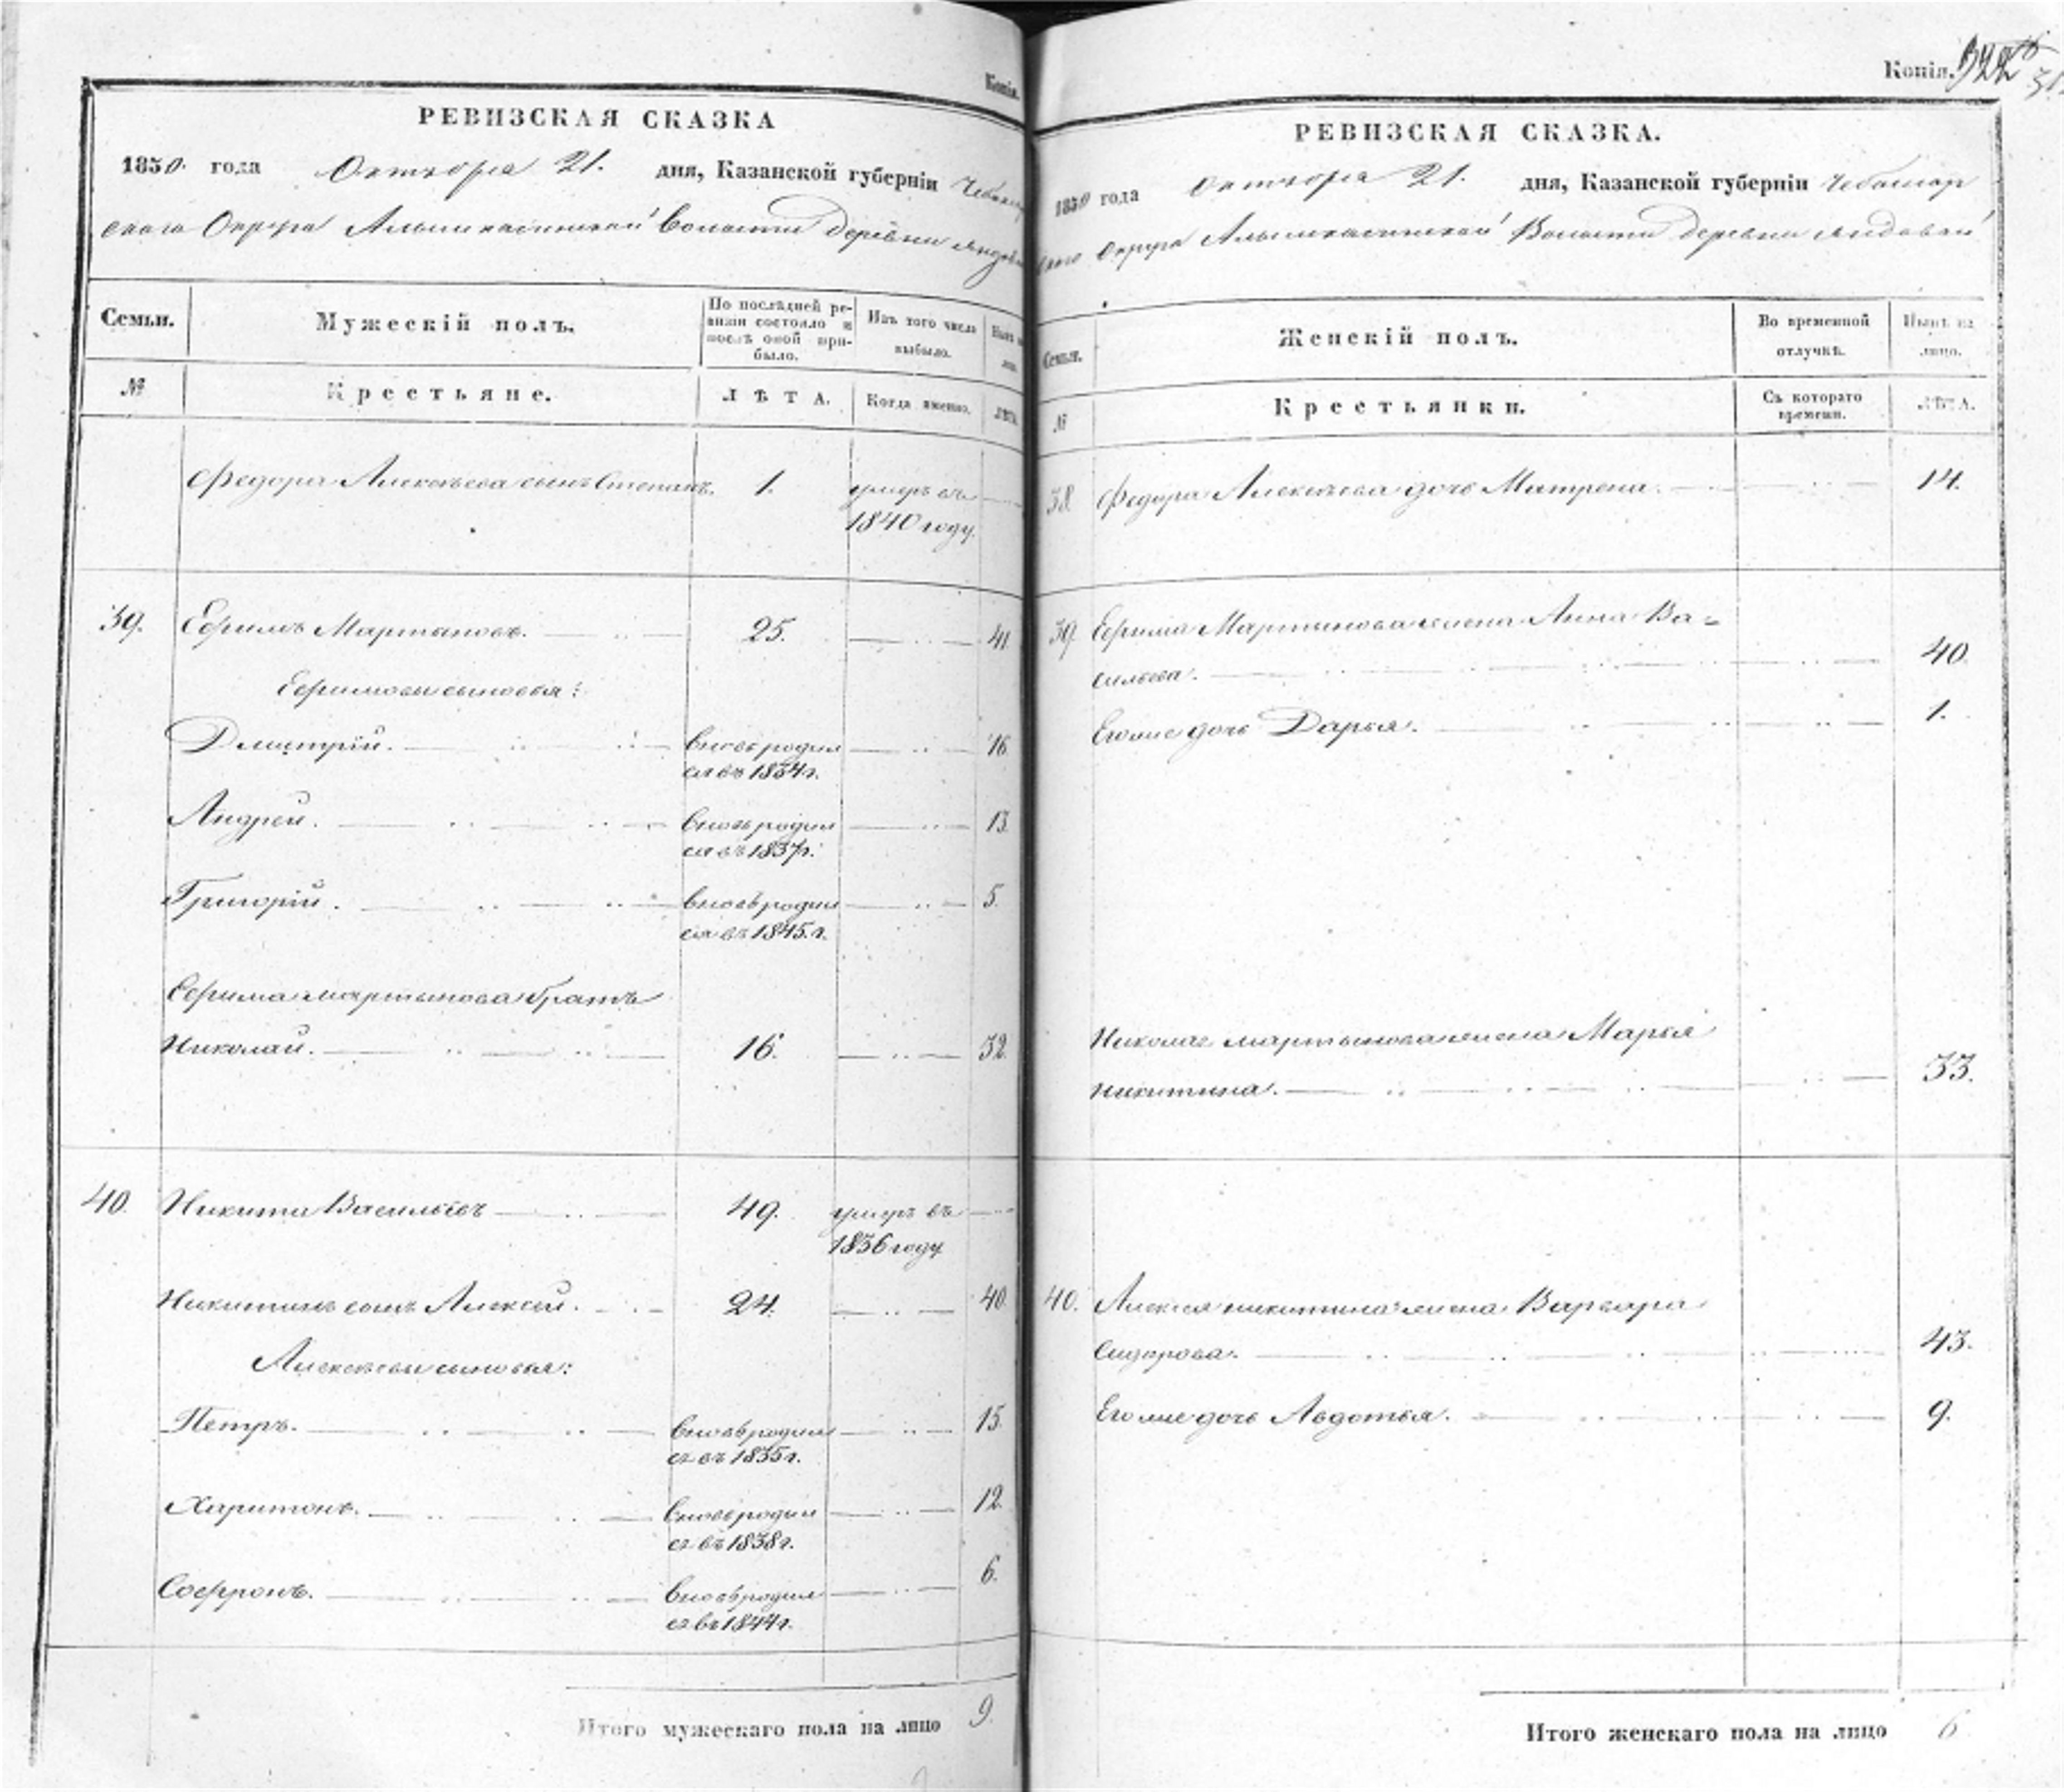 Копія.
РЕВИЗСКАЯ СКАЗКА
1850 года Октября 21. дня, Казанской губерніи Чебоксар
скаго Округа Алымкасинской Волости деревни Яндовой
Семьи.
Мужескій полъ.
По послѣдней ре-
визіи состояло и
послѣ оной при-
было.
Изъ того числа
выбыло.
Нынѣ на
лицо.
№
Крестьяне.
ЛѢТА.
Когда именно.
ЛѢТА.
Федора Алексѣева сынъ Степанъ. 1. умеръ въ
1840 году.
39. Ефимъ Мартыновъ. 25. 41.
Ефимовы сыновья:
Дмитрій. вновь родил 16.
ся въ 1834 г.
Андрей. вновь родил 13.
ся въ 1837 г.
Григорій. вновь родил 5.
ся въ 1845. г.
Ефима мартынова братъ
Николай. 16. 32.
40. Никита Васильевъ 49. умеръ въ
1836 году
Никитинъ сынъ Алексѣй. 24. 40.
Алексѣевы сыновья:
Петръ. вновь родил 15.
ся въ 1835 г.
Харитонъ. вновь родил 12.
ся въ 1838 г.
Софронъ. вновь родил 6.
ся въ 1844 г.
Итого мужескаго пола на лицо 9.
Копія.
РЕВИЗСКАЯ СКАЗКА.
1850 года Октября 21. дня, Казанской губерніи Чебоксар
скаго Округа Алымкасинской Волости деревни Яндовой
Семьи.
Женскій полъ.
Во временной
отлучкѣ.
Нынѣ на
лицо.
№
Крестьянки.
Съ котораго
времени.
ЛѢТА.
38. Федора Алексѣева дочь Матрена. 14.
39. Ефима Мартынова жена Анна Ва-
сильева. 40.
Его же дочь Дарья. 1.
Николая мартынова жена Марья
никитина. 33.
40. Алексѣя никитина жена Варвара
Сидорова. 43.
Его же дочь Авдотья. 9.
Итого женскаго пола на лицо 6